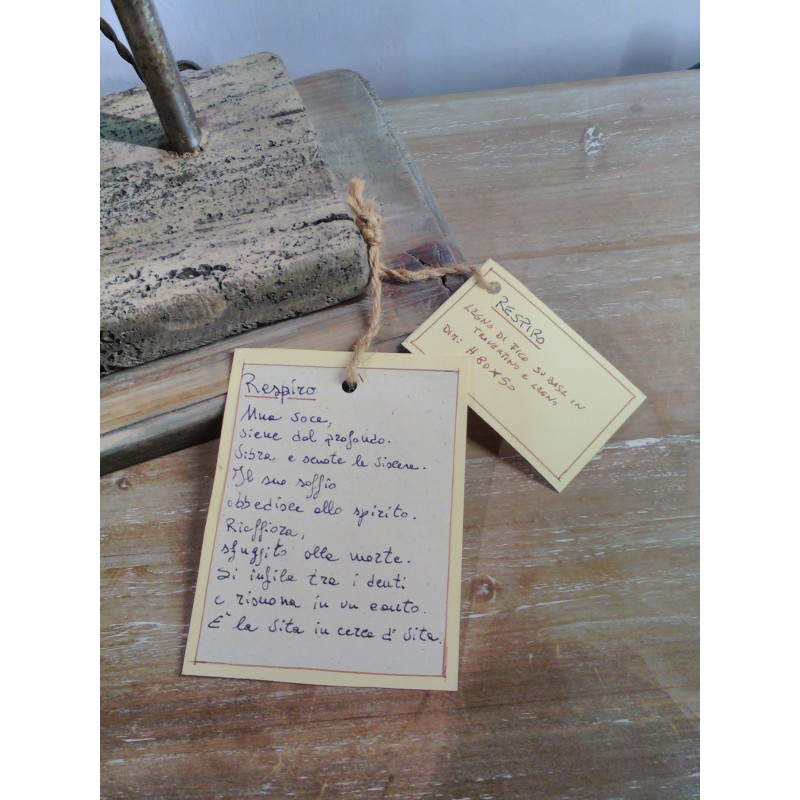 Respiro
Una voce,
viene dal profondo.
Vibra e scuote le viscere.
Il suo soffio
obbedisce allo spirito.
Riaffiora,
sfuggito alla morte.
Si infila tra i denti
e risuona in un canto.
E' la vita in cerca di vita.
RESPIRO
LEGNO DI FICO SU BASE IN
TRAVERTINO E LEGNO
DIM: H 80 X 50